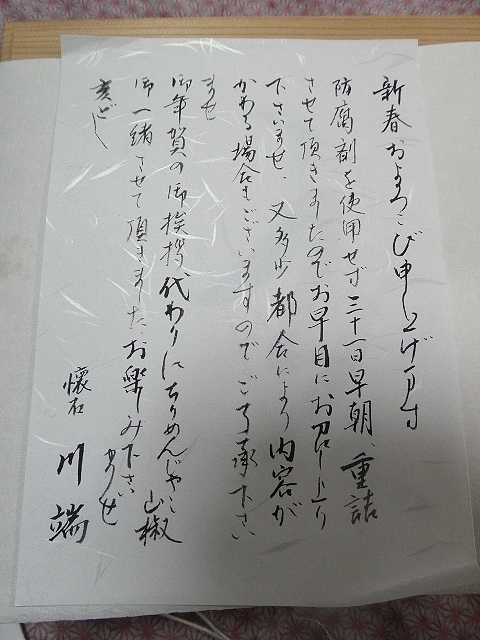 新春およろこび申し上げます
防腐剤を使用せず三十一日早朝、重詰
させて頂きましたのでお早目にお召し上り
下さいませ、又多少都合により内容が
かわる場合もございますのでご了承下さい
ませ
御年賀の御挨拶代わりにちりめんじゃこ山椒
御一緒させて頂きましたお楽しみ下さい
ませ
亥どし
懐石 川端